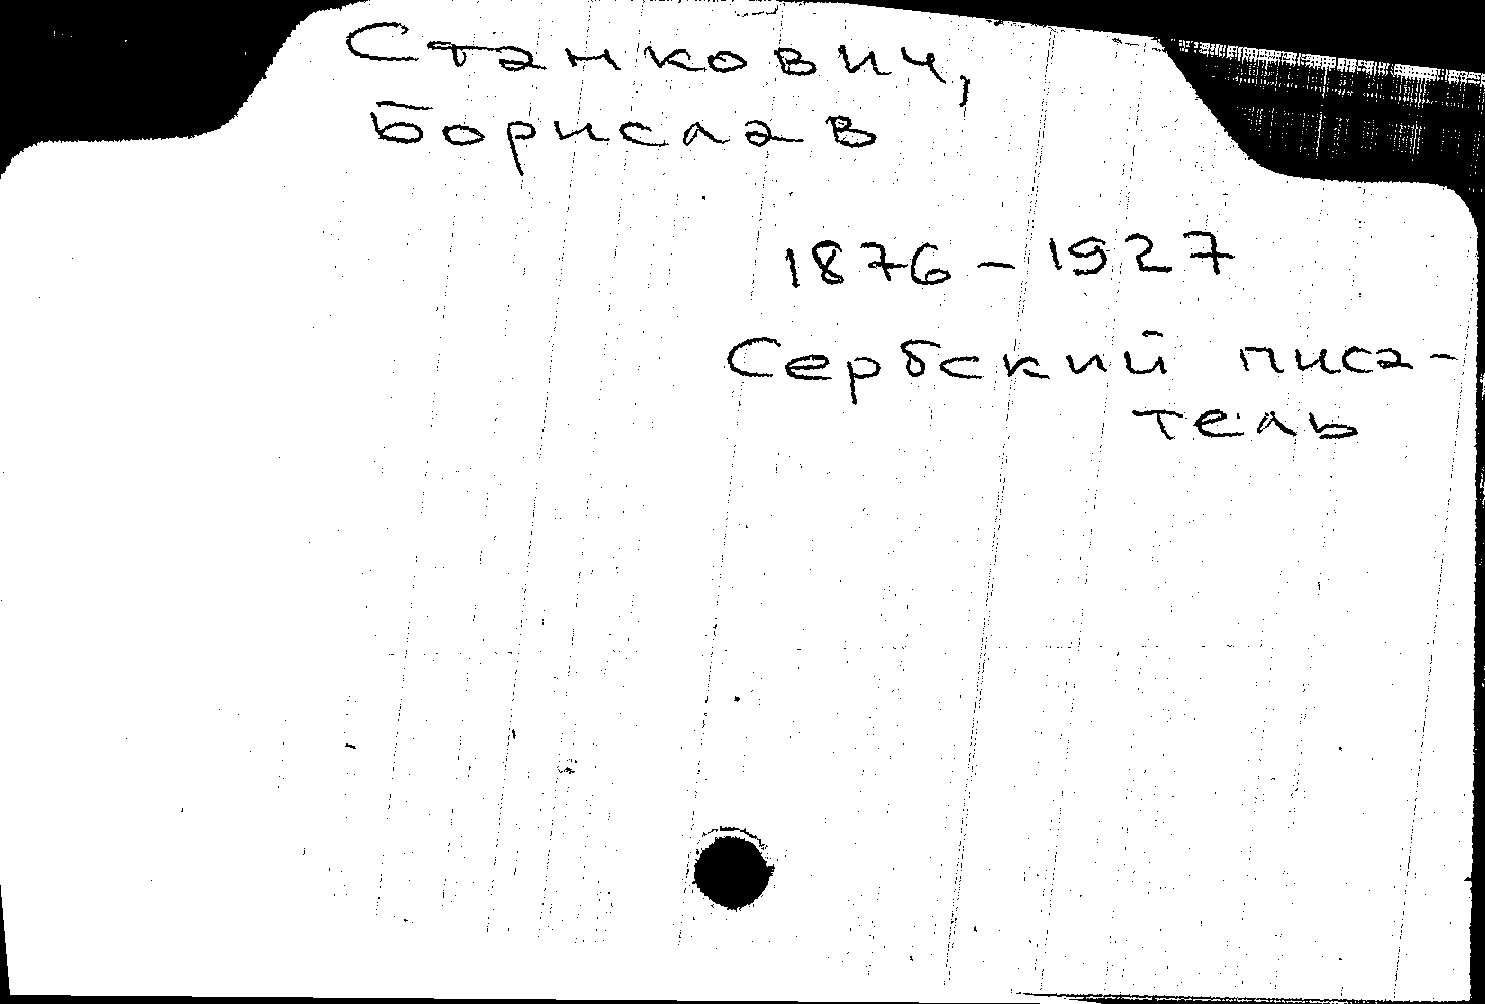 Станкович,
Борислав
1876 – 1927
Сербский писа-
тель